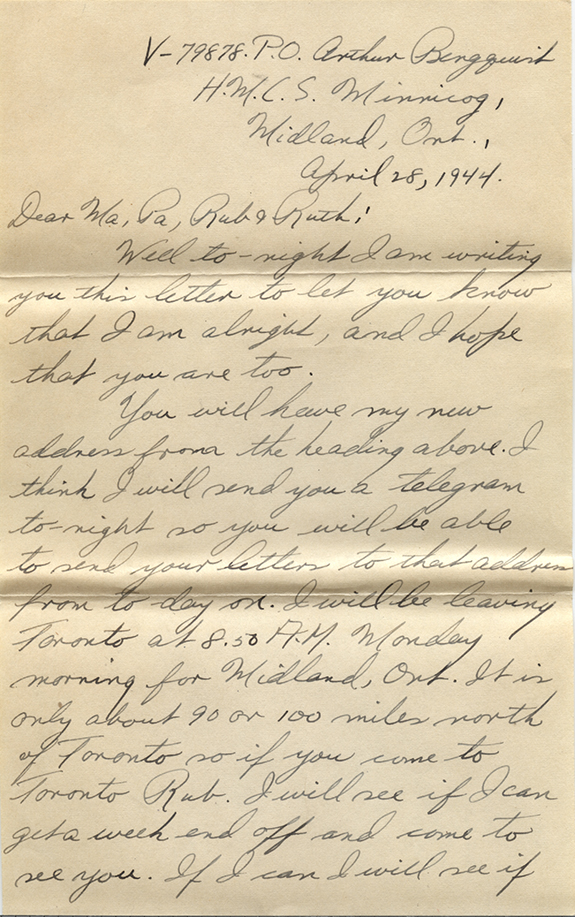 V-79878. P.O. Arthur Bergquist
H.M.C.S. Minnicog,
Midland, Ont.,
April 28, 1944.
Dear Ma, Pa, Rub & Ruth;
Well to-night I am writing
you this letter to let you know
that I am alright, and I hope
that you are too.
You will have my new
address from the heading above. I
think I will send you a telegram
to-night so you will be able
to send your letters to that address
from to day on. I will be leaving
Toronto at 8.50 A.M. Monday
morning for Midland, Ont. It is
only about 90 or 100 miles north
of Toronto so if you come to
Toronto Rub. I will see if I can
get a week end off and come to
see you. If I can I will see if